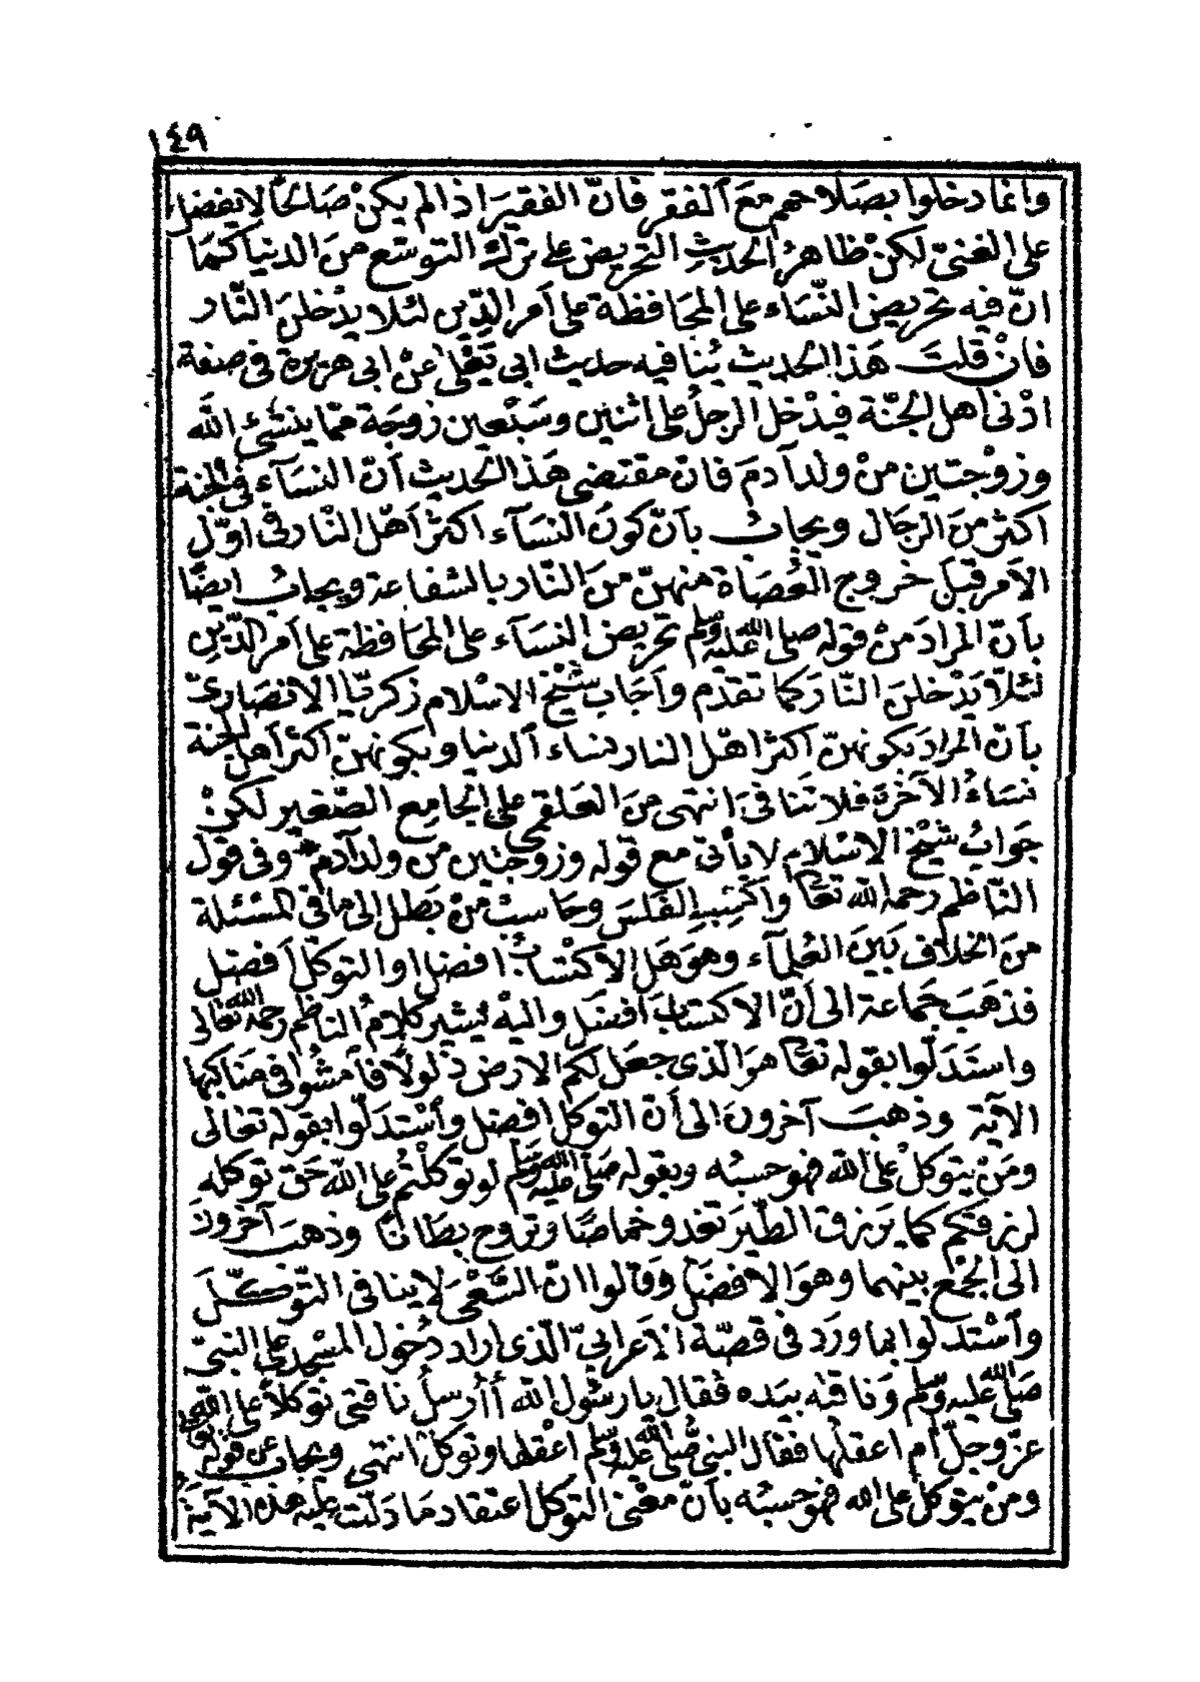 ١٤٩
وانما دخلوا بصلاحهم مع الفقر فانّ الفقير اذا لم يكنْ صالحًا لا يفضل
على الغنىّ لكنْ ظاهرُ الحديثِ التحريض على ترك التوسّع منَ الدنيا كمَا
انّ فيه تحريض النّسَاء على المحَافظة على أمر الدّين لئلا يدْخلنَ النّار
فانْ قلتَ هَذا الحديث يُنافيه حديث ابى يَعْلىٰ عنْ ابى هريرة فى صفة
ادْنى اهل الجنّة فيدْخل الرجلُ على اثنين وسَبْعين زوجَة ممّا ينشئ الله
وزوْجتين منْ ولد آدمَ فانّ مقتضى هَذا الحديث أنّ النسَآء فى الجنة
اكثر منَ الرجَال ويجابُ بأنّ كونَ النسَآء اكثر أهْل النّار فى اوّل
الأمر قبل خروج العُصَاة منهنّ منَ النّار بالشفاعة ويجابُ ايضًا
بأنّ المرادَ منْ قوله صلى الله عليه وسلم تحريض النسَآء على المحَافظة على أمر الدّينِ
لئلاّ يَدْخلنَ النّارَ كما تقدّم وأجَاب شيْخ الاسْلام زكريّا الانصَارىّ
بأنّ المرادَ بكونهنّ اكثر اهْل النار نساء الدنيا وبكونهنّ اكثر أهل الجنة
نسَاءُ الآخرَة فلا تَنافىَ انتهى منَ العَلقمى على الجامِع الصّغير لكنْ
جَوابُ شيْخ الاسْلام لا يأتى مع قوله وزوجتين من ولد آدم وفى قول
النّاظم رحمه الله تعالى وأكتسِب الفَلسَ وحَاسبْ منْ بَطل الى ما فى المسْئلة
منَ الخلاف بَينَ العُلمآء وهوَ هَل الاكتسَابُ افضل او التوكّل أفضل
فذهَبَ جَماعة الى أنّ الاكتسَابَ افضَل واليهْ يُشير كلامُ الناظم رحمه الله تعالى
واستَدَلّوا بقوله تعَالى هوَ الذى جعَل لكم الارض ذلولاً فأمشُوا فى مَناكبها
الآية وذهبَ آخرونَ الى أنّ التوكل افضل وأسْتدَلّوا بقوله تعَالى
ومَنْ يتوكلْ على الله فهو حسبُه وبقوله صَلّى الله عليه وسلم لو توكلْتُم على الله حَق توكله
لرزقكم كما يَرزق الطّيرَ تغدو خماصًا وتروح بطَانًا وذهبَ آخرونَ
الى الجمْع بينهما وهوَ الافضَل وَقالوا انّ السّعْىَ لا ينافى التّوكّلَ
وأسْتدَلوا بما ورَد فى قصّة الأعرابىّ الّذى اراد دخُول المسْجد على النبىّ
صَلّى الله عليه وسلم وَناقته بيَده فقال يا رسُول الله أأرسلُ ناقتى توكلاً على الله
عزّ وجلّ أم اعقلها فقال النبى صَلّى الله عليه وسلم اعْقلها وتوكلْ انتهى ويجابُ عن قوله تعالى
ومنْ يتوكل على الله فهو حسبُه بأنّ معْنى التوكل اعتقاد مَا دَلّت عليه هَذه الآية